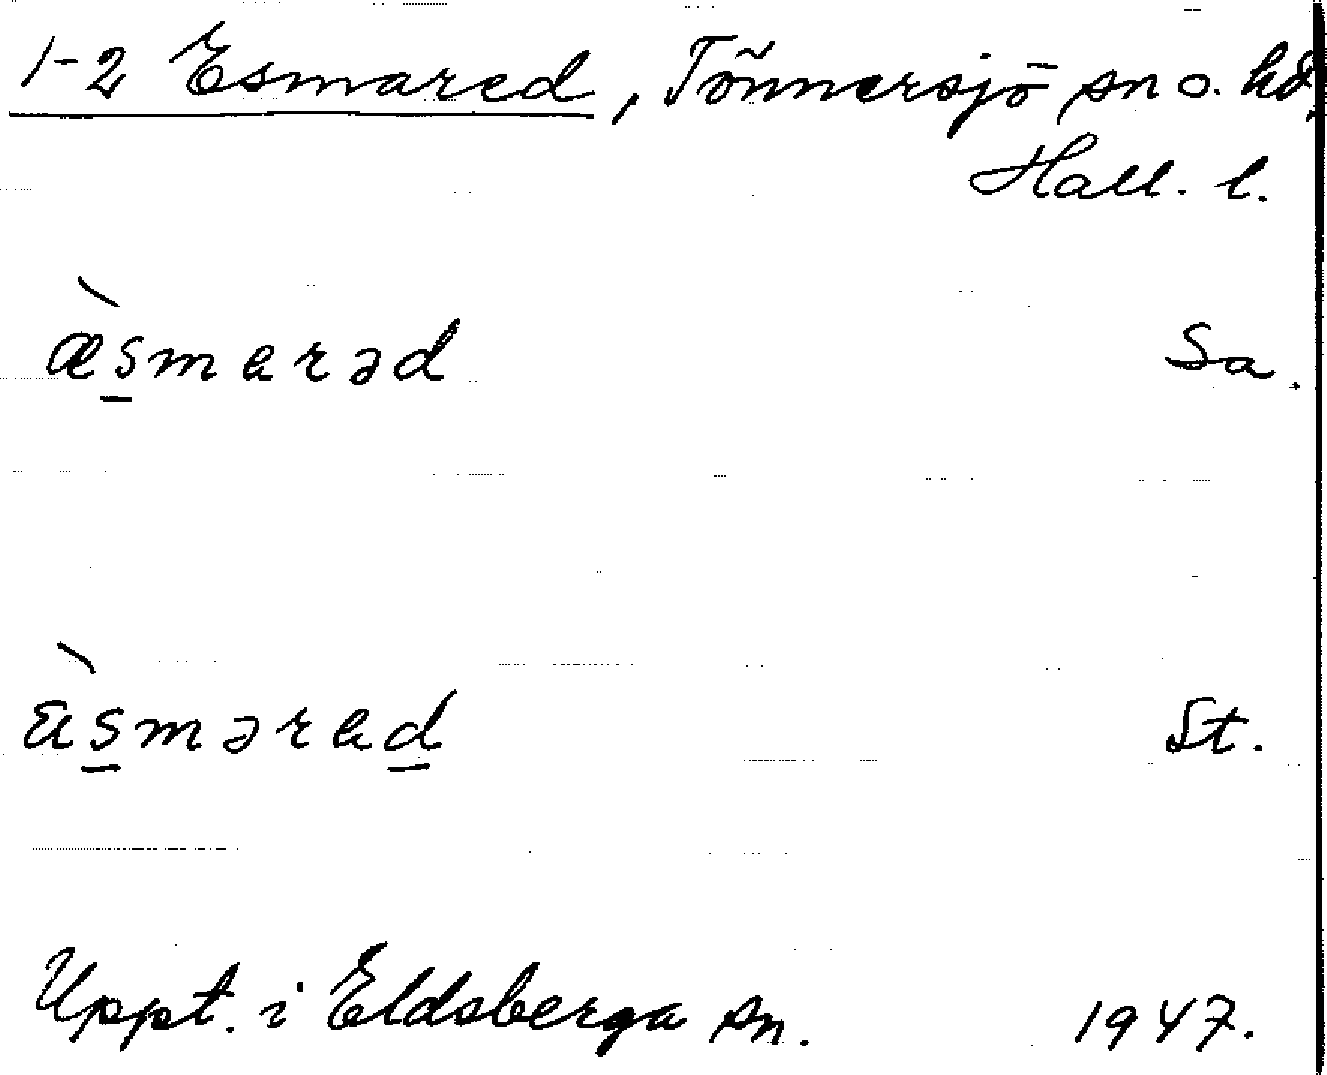 1-2 Esmared, Tönnersjö sn o. hd,
Hall. l.
æ̀s̲mɐrəd Sa.
ä̀s̲mərɐd̲ St.
Uppt. i Eldsberga sn. 1947.